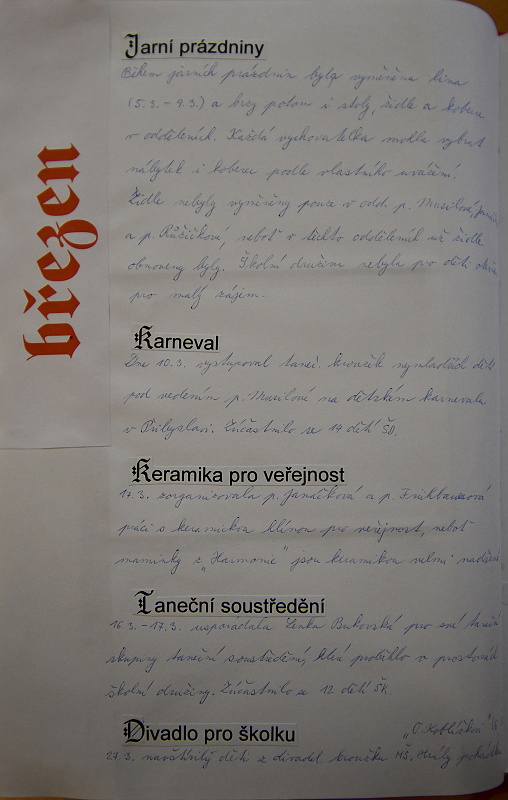 březen
Jarní prázdniny
Během jarních prázdnin byla vyměněna lina
(5.3. – 9.3.) a brzy potom i stoly, židle a koberce
v odděleních. Každá vychovatelka mohla vybrat
nábytek i koberec podle vlastního uvážení.
Židle nebyly vyměněny pouze v odd. p. Musilové,
a p. Růžičkové, neboť v těchto odděleních už židle
obnoveny byly. Školní družina nebyla pro děti
pro malý zájem.
Karneval
Dne 10.3. vystupoval taneč. kroužek nejmladších dětí
pod vedením p. Musilové na dětském karnevalu
v Přibyslavi. Zúčastnilo se 14 dětí ŠD.
Keramika pro veřejnost
17.3. zorganizovala p. Janáčková a p. Frühbauerová
práci s keramickou hlínou pro veřejnost, neboť
maminky z „Harmonie" jsou keramikou velmi nadšené
Taneční soustředění
16.3. – 17.3. uspořádala Lenka Bukovská pro své taneční
skupiny taneční soustředění, které proběhlo v prostorách
školní družiny. Zúčastnilo se 12 dětí ŠK
Divadlo pro školku
„O Koblížkovi"
27.3. navštívily děti z divadel. kroužku MŠ. Hrály pohádku